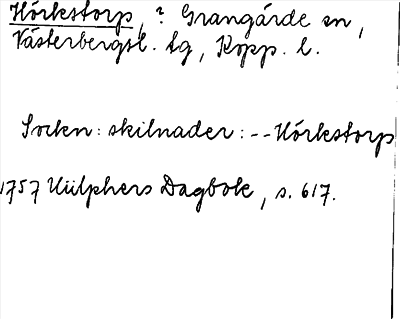 Hörkstorp, ? Grangärde sn,
Västerbergsl. tg, Kopp. l.
Socken: skilnader: -- Hörkstorp
1757 Hülphers Dagbok, s. 617.